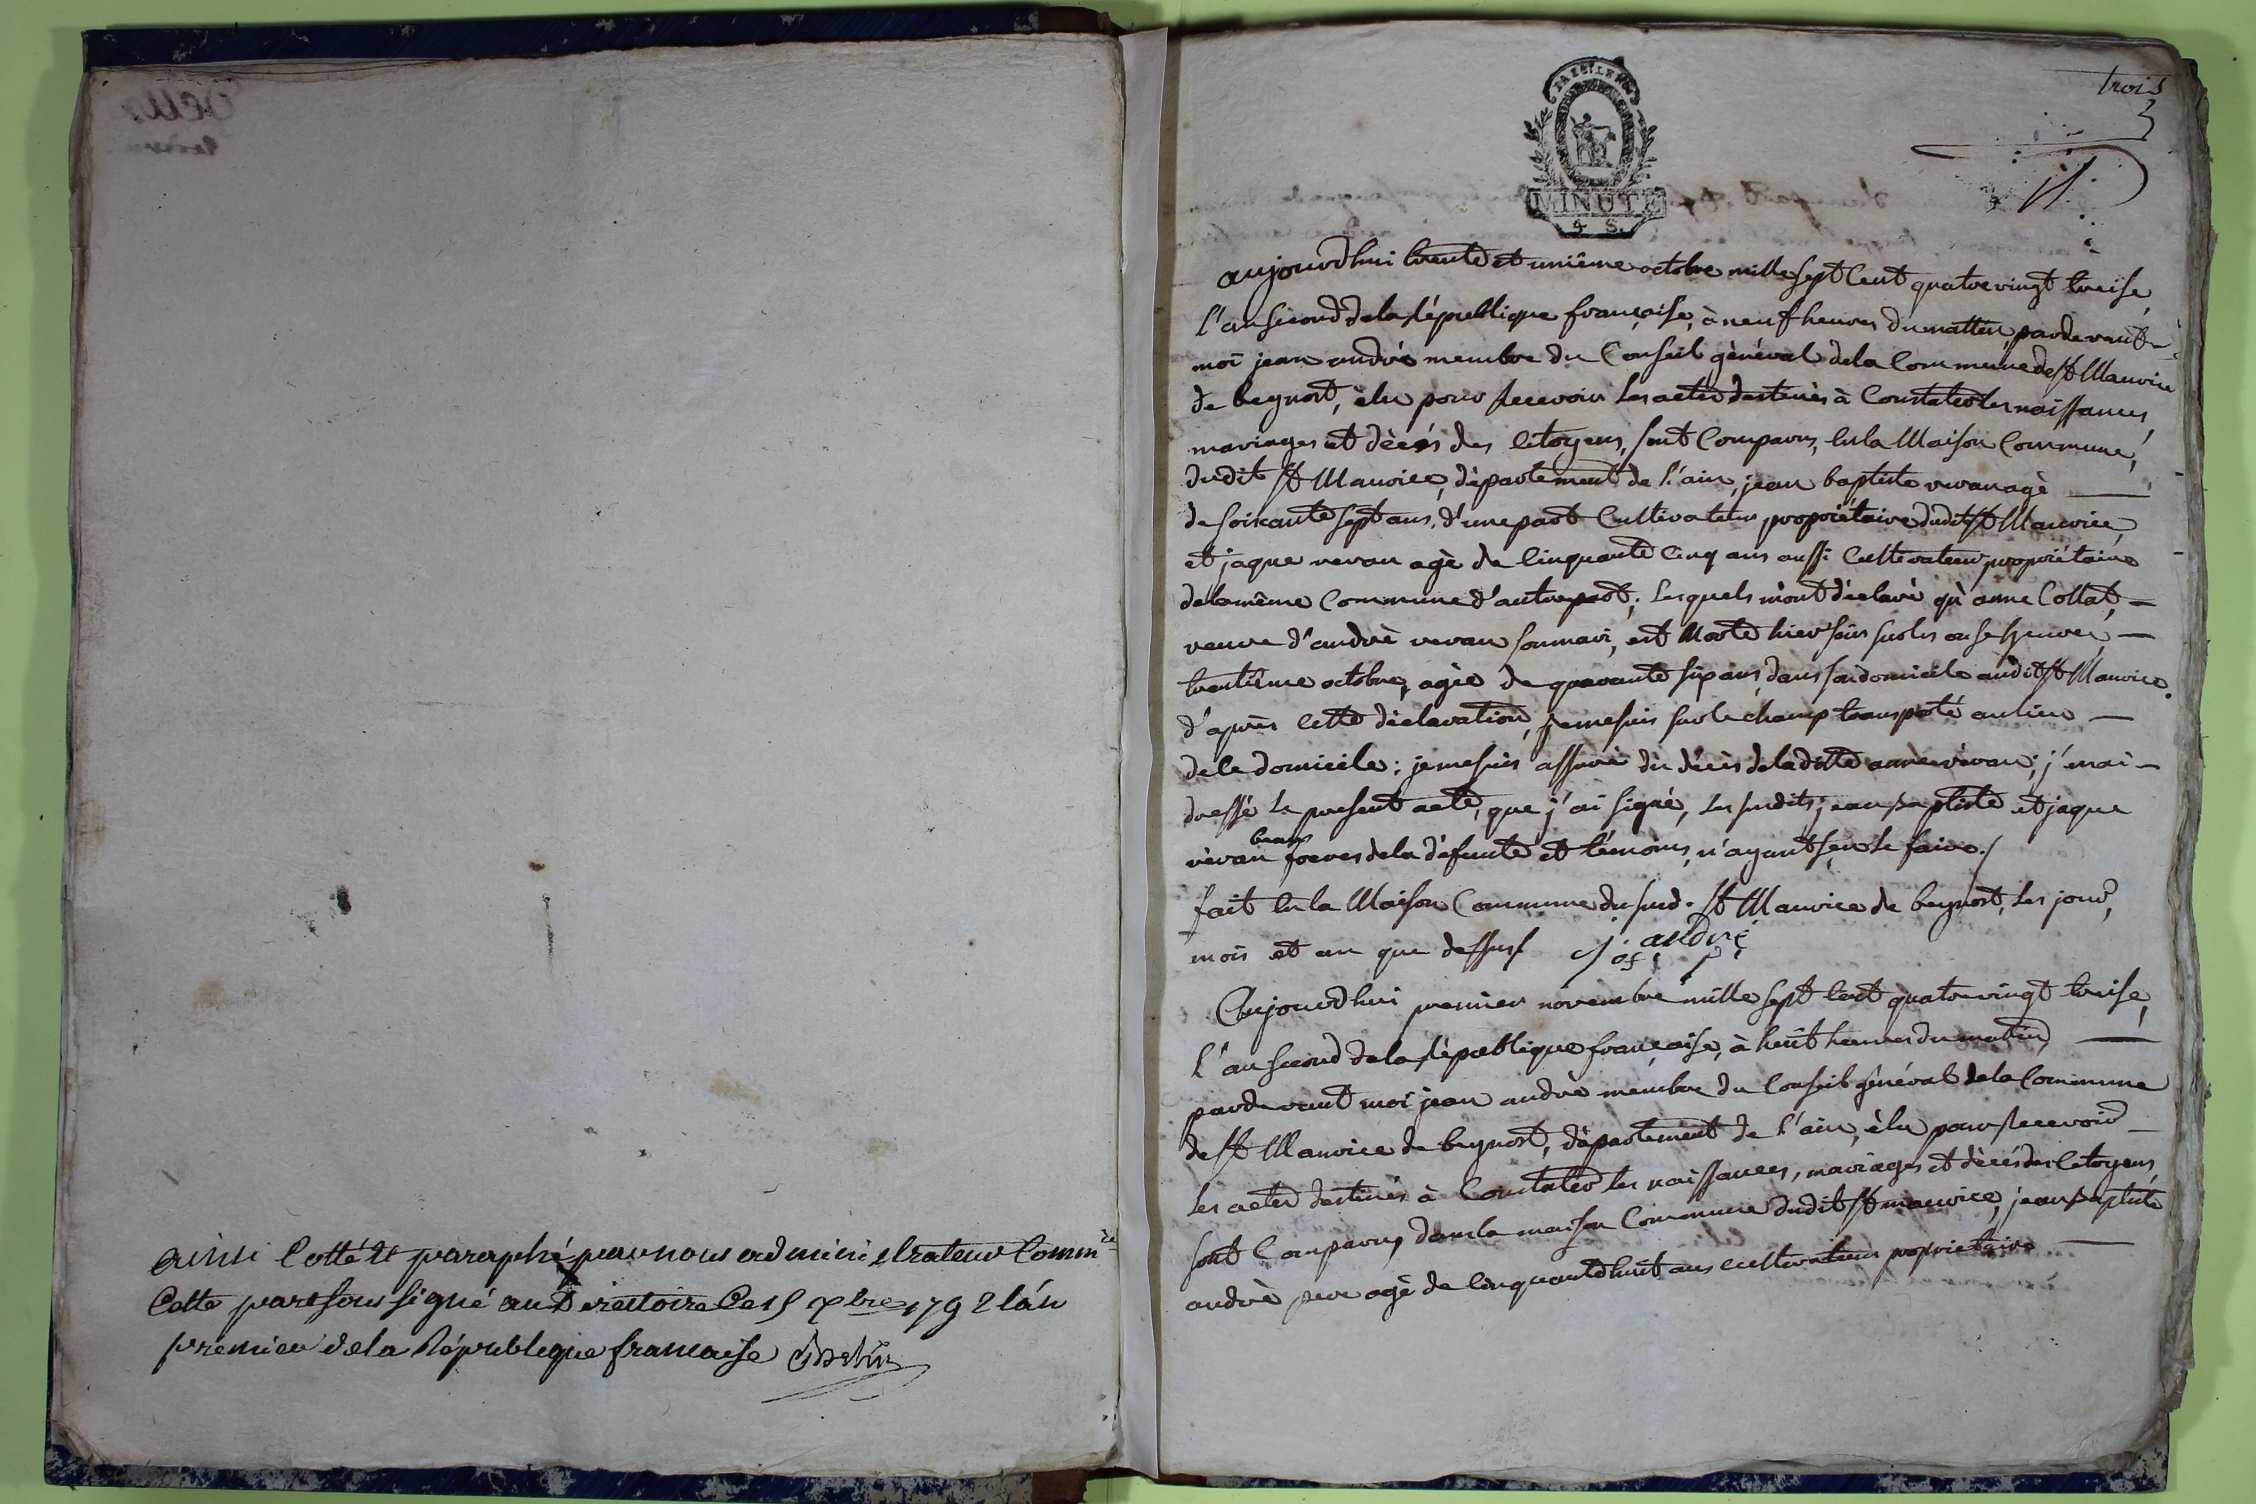 ainsi Cotté et paraphé par nous administrateur Comm.re
Cette part sous signé au Directoire Ce 15 xbre 1792 l'an
premier de la République francaise
trois
3
MINUTE
4 S.
aujourdhui trente et unième octobre mille sept Cent quatre vingt treise,
l'an second de la République française, à neuf heures du mattin, pardevant
moi jean andrè membre du Conseil gènéral de la Commune de St Maurice
de beynost, èlu pour Recevoir les actes destinès à Constater les naissances,
mariages et dècès des Citoyens, sont Comparus, En la Maison Commune,
dudit St Maurice, dèpartement de l'ain, jean baptiste revan agè
de soixante sept ans, d'une part Cultivateur propriétaire dudit St Maurice,
et jaque revan agè de Cinquante Cinq ans aussi Cultivateur propriétaire
de la même Commune d'autre part; Lesquels m'ont dèclarè qu'anne Collat,
veuve d'andrè revan son mari, est Morte hier soir sur les onse heures,
trentième octobre, agèe de quarante six ans, dans son domicile audit St Maurice.
d'après Cette dèclaration, je me suis sur le champ transporté au lieu
de Ce domicile; je me suis assurè du dècès de la ditte anne rèvan; j'en ai
dressé le present acte, que j'ai signé, les susdits jean Baptiste et jaque
beaux
rèvan freres de la dèfunte et tèmoins, n'ayant sçu le faire./
fait En la Maison Commune du sud. St Maurice de beynost, les jour,
mois et an que dessus. J. andré
of. p.
Aujourdhui premier novembre mille sept Cent quatre vingt treise,
l'an second de la République française, à huit heures du matin,
pardevant moi jean andrè membre du Conseil gènéral de la Commune
de St Maurice de beynost, dèpartement de l'ain, èlu pour Recevoir
les actes destinès à Constater les naissances, mariages et dècès des Citoyens,
sont Comparus, dans la maison Commune dudit St maurice, jean Baptiste
andrè pere agè de Cinquante huit ans cultivateur propriétaire